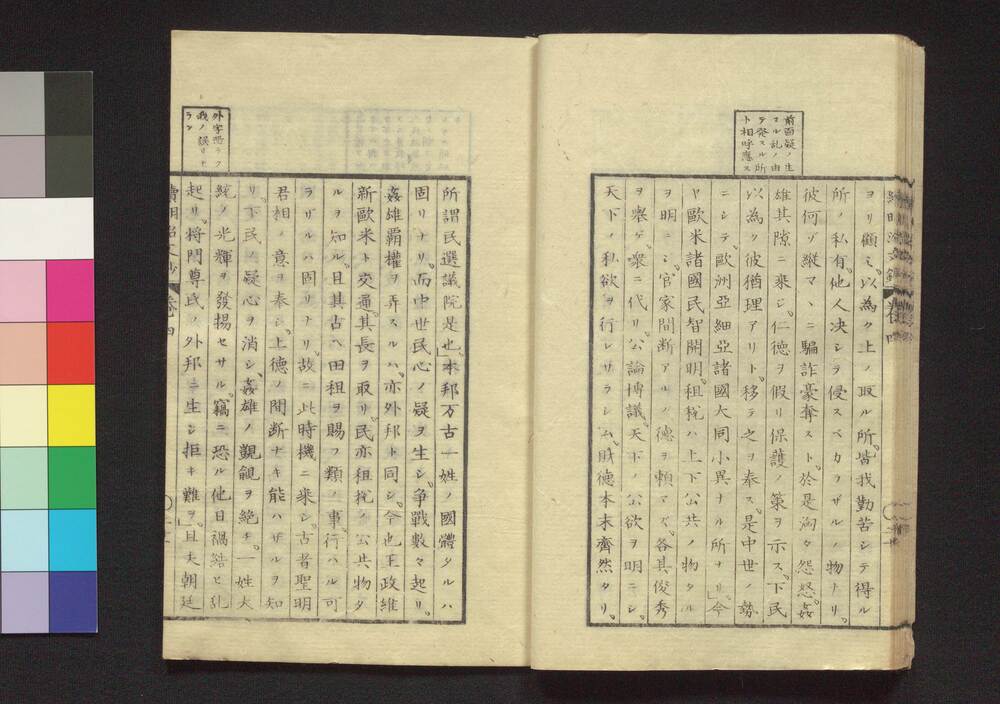 前面疑ノ生
スル乱ノ由
テ発スル所
ト相呼應ス
ヲリ顧ミ。以為ク上ノ取ル所。皆我勤苦シテ得ル
所ノ私有。他人决シテ侵スベカラザルノ物トリ。
彼何ゾ縦マヽニ騙詐豪奪スト。於是洶々怨怒。姦
雄其隙ニ乗シ。仁德ヲ假リ保護ノ策ヲ示ス。下民
以為ク彼猶理アリト。移テ之ヲ奉ス。是中世ノ勢
ニシテ。歐洲亞細亞諸國大同小異ナル所ナリ。」今
ヤ歐米諸國民智開明。租税ハ上下公共ノ物タル
ヲ明ニシ。官家間断アルノ德ヲ頼マズ。各其俊秀
ヲ舉ゲ。衆ニ代リ。公論博議。天下ノ公欲ヲ明ニシ。
天下ノ私欲ヲ行レザラシム。財德本末齊然タリ。
所謂民選議院是也。」本邦万古一姓ノ國體タルハ
固リナリ。而中世民心ノ疑ヲ生シ。争戰數々起リ。
姦雄覇權ヲ弄スルハ。亦外邦ト同シ。今也王政維
新歐米ト交通。其長ヲ取リ。民亦租税ノ公共物タ
ルヲ知ル。且其古ヘ田租ヲ賜フノ類ノ事。行ハル可
ラザルハ固リナリ。故ニ此時機ニ乗シ。古昔聖明
君相ノ意ヲ奉シ。上德ノ間断ナキ能ハザルヲ知
リ。下民ノ疑心ヲ消シ、姦雄ノ覬覦ヲ絶チ。一姓大
統ノ光輝ヲ發揚セサル。竊ニ恐ル他日禍結ヒ乱
起リ。將門尊氏ノ外邦ニ生シ拒キ難ヲ。」且夫朝廷
外字恐ラク
ハ誤リナ
ラン